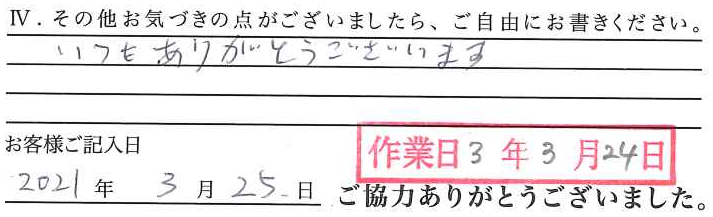 Ⅳ．その他お気づきの点がございましたら、ご自由にお書きください。
いつもありがとうございます
お客様ご記入日
作業日3年3月24日
2021年3月25日
ご協力ありがとうございました。